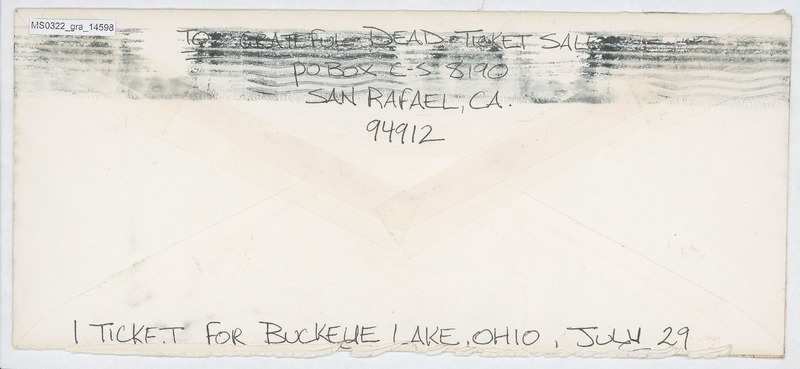 MS0322_gra_14598
TO: GRATEFUL DEAD TICKET SALES
PO BOX C-S 8190
SAN RAFAEL, CA.
94912
1 TICKET FOR BUCKEYE LAKE, OHIO, JULY 29